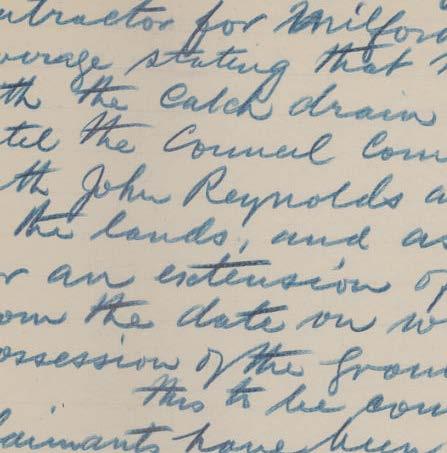 ntractor for Milford
verage stating that
th the Catch drain
til the Council Com
th John Reynolds a
the lands, and as
r an extension of
om the date on w
ossession of the groun
this to be com
laimants have been